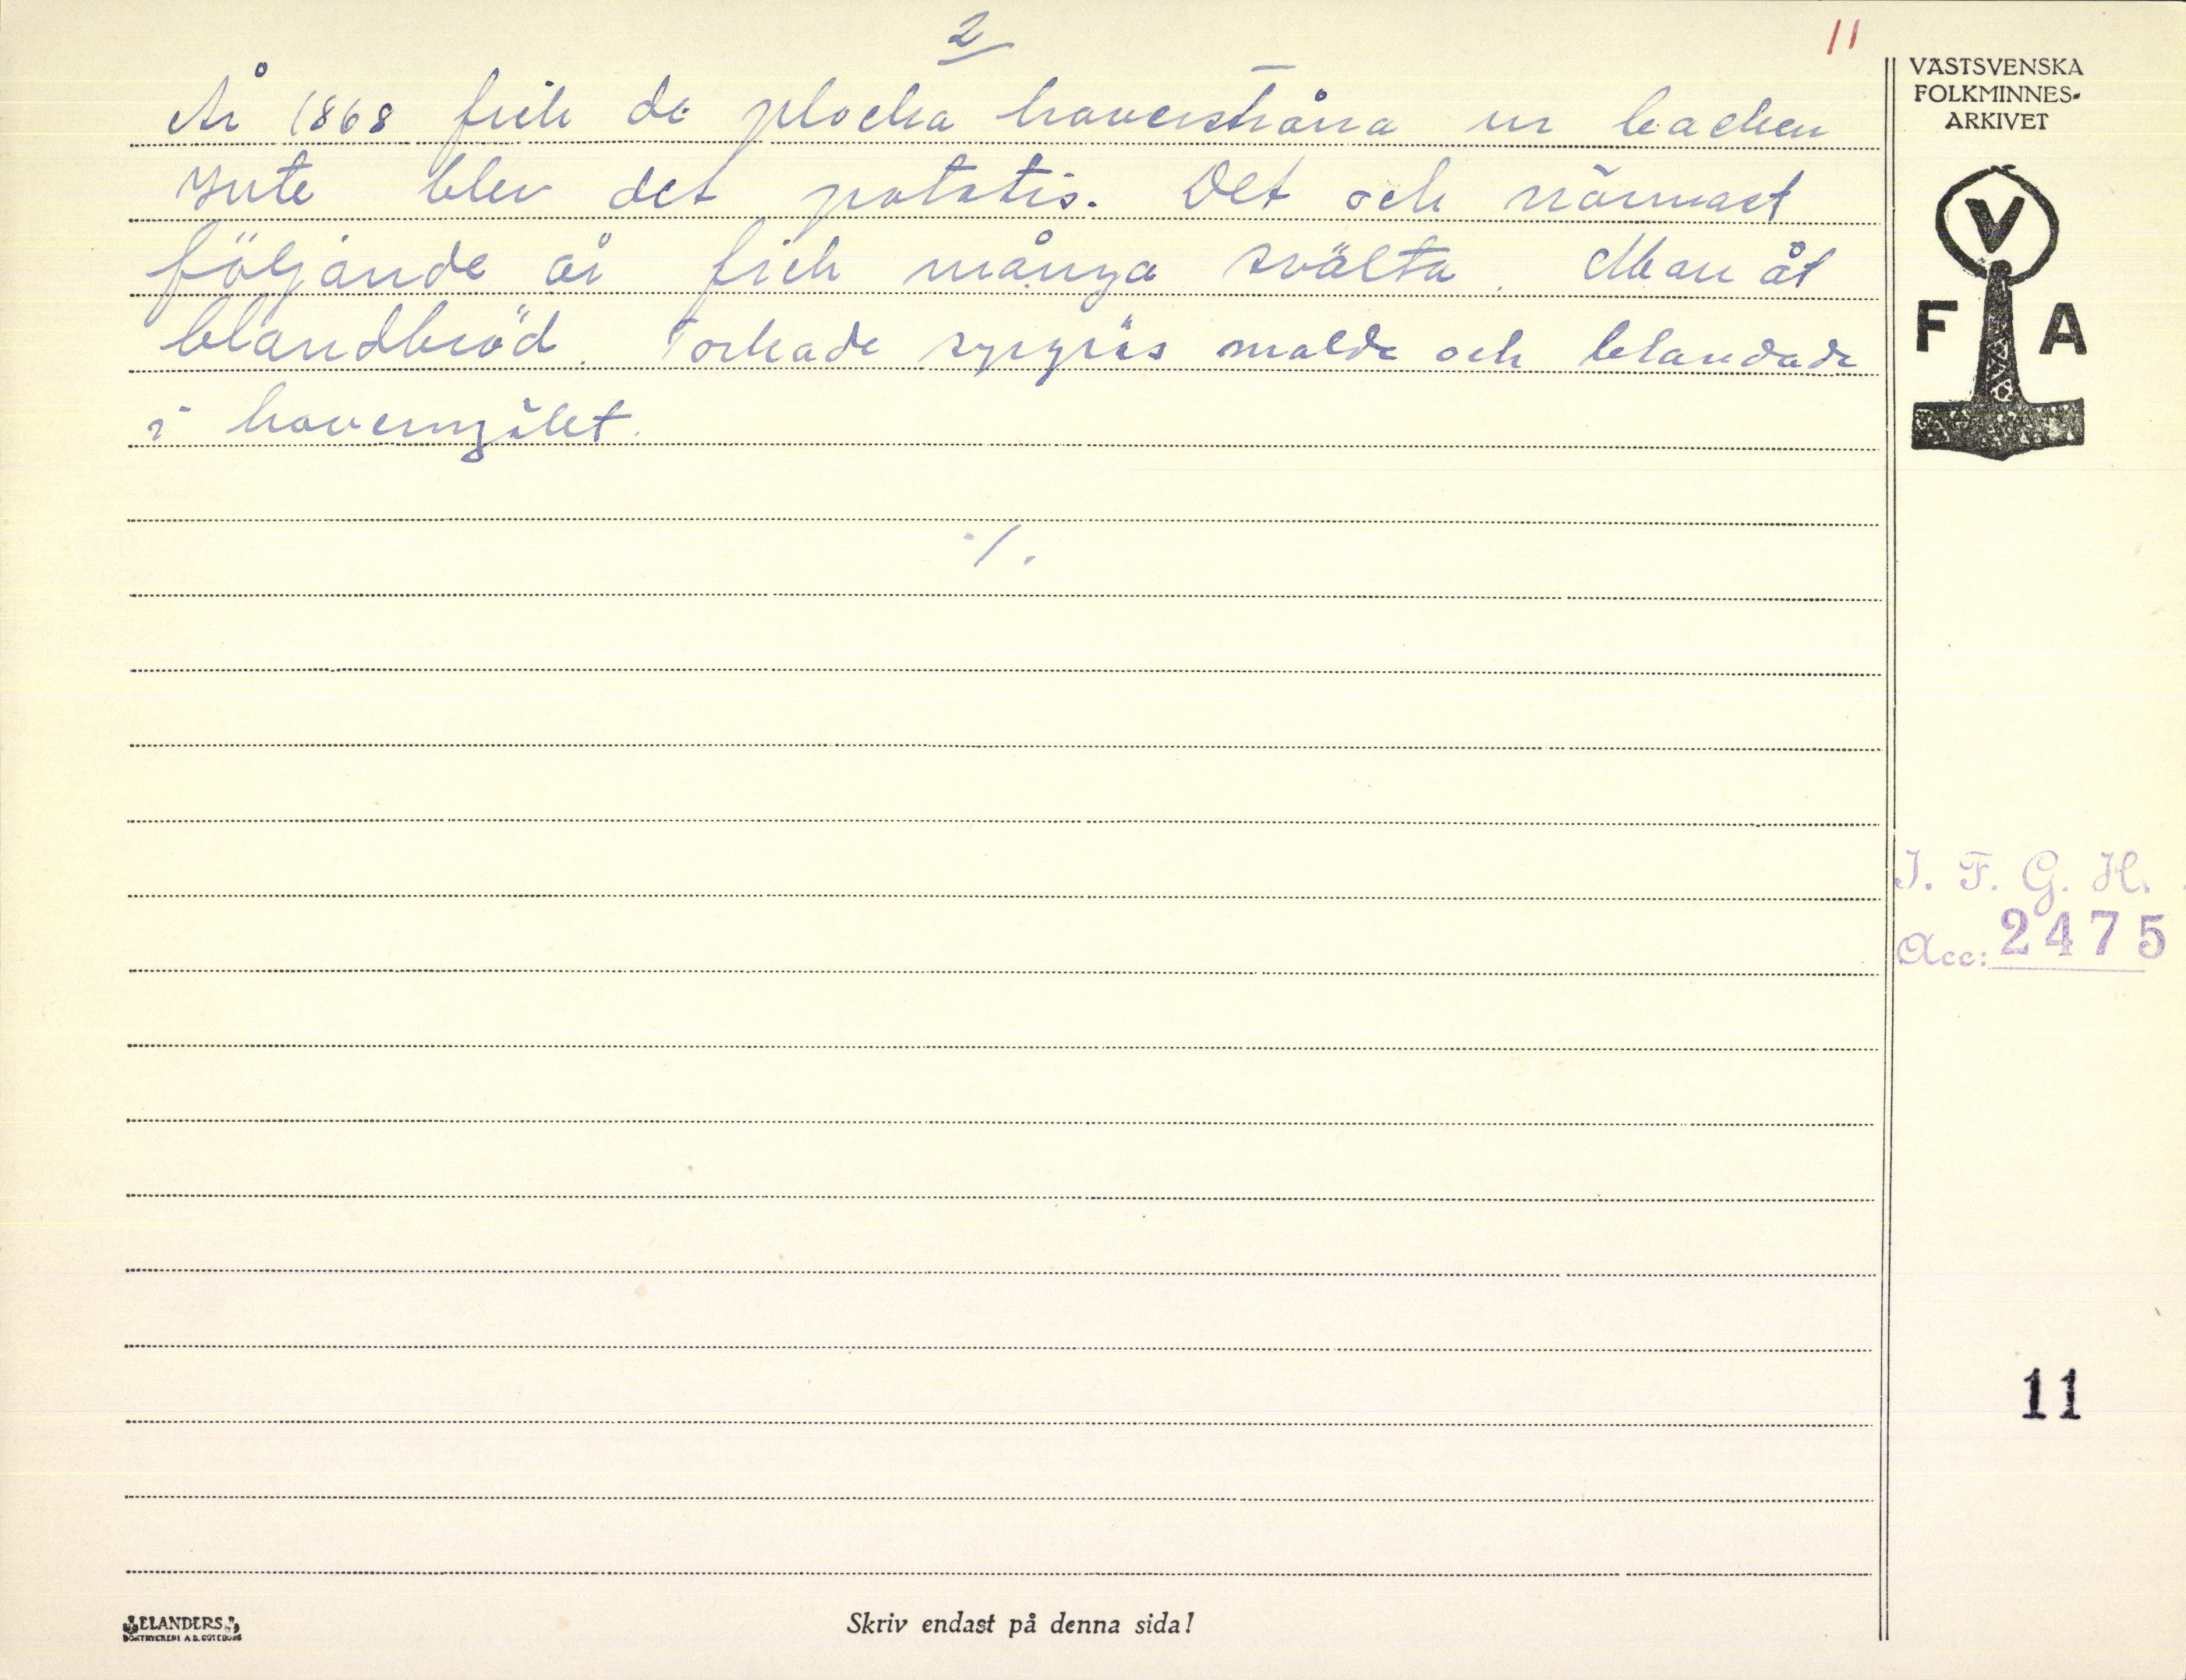 2
11
År 1868 fick de plocka haverstråna ur backen
Inte blev det potatis. Det och närmast
följande år fick många svälta. Man åt
blandbröd. Torkade syrgräs malde och blandade
i havermjölet.
./.
VÄSTSVENSKA
FOLKMINNES-
ARKIVET
V
F A
I. F. G. H.
Acc: 2475
11
ELANDERS
BOKTRYCKERI A.B. GÖTEBORG
Skriv endast på denna sida!